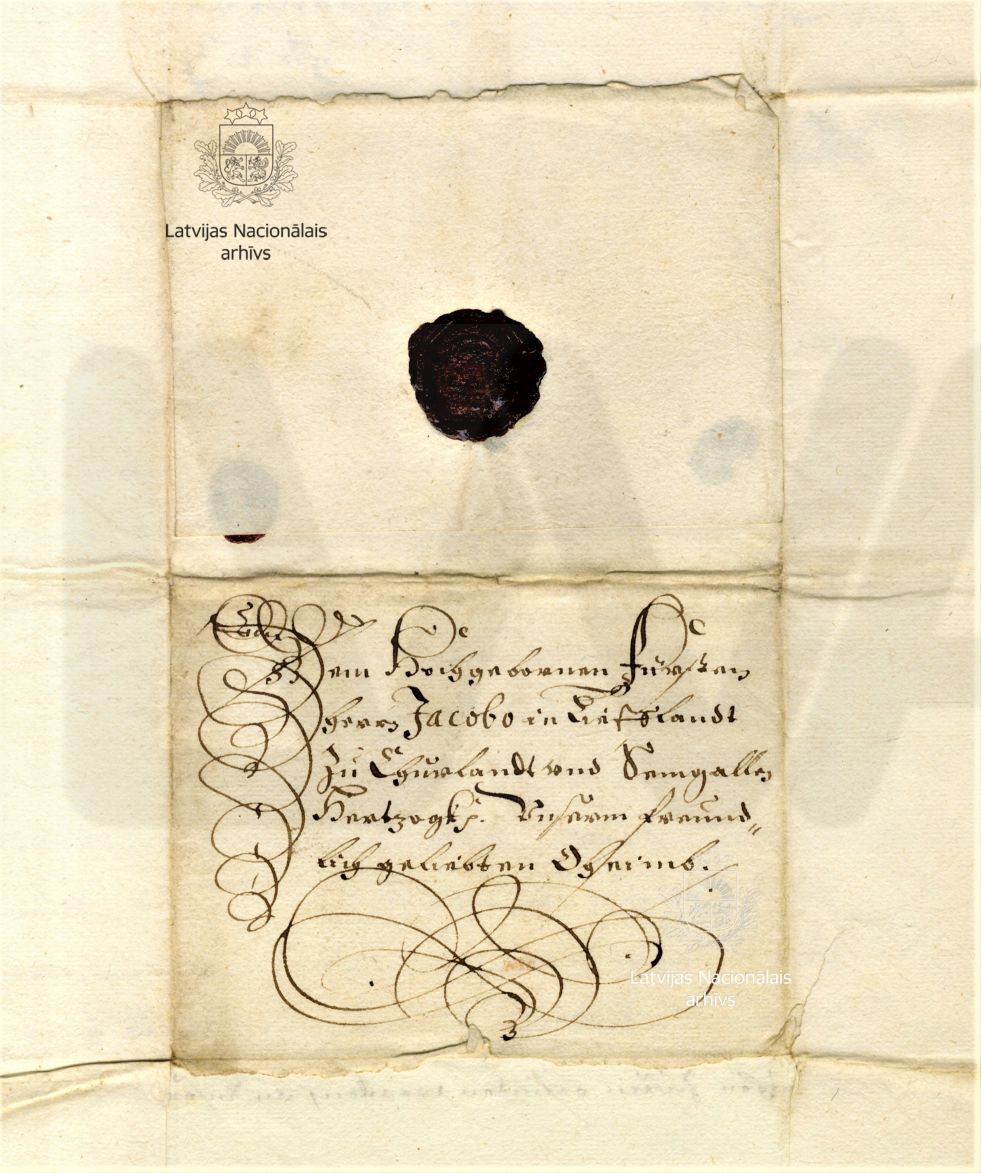 Latvijas Nacionālais
arhīvs
Dem Hochgebornen Fürsten
herrn Jacobo in Liefflandt
Zu Churlandt vnd Semgallen
Hertzogk. Vnserm freund„
lich geliebten Oheimb.
Latvijas Nacionālais
arhīvs